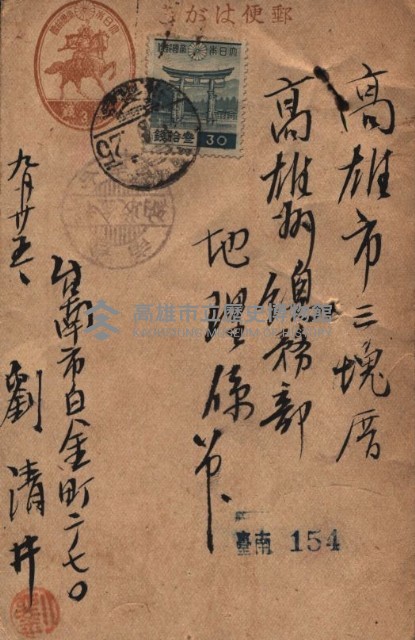 郵便はがき
大日本帝國郵便
參拾錢 30
高雄市三塊厝
高雄州總務部
地理係
九月廿五
台南市白金町二ノ七〇
劉清井
臺南 154
高雄市立歷史博物館
KAOHSIUNG MUSEUM OF HISTORY